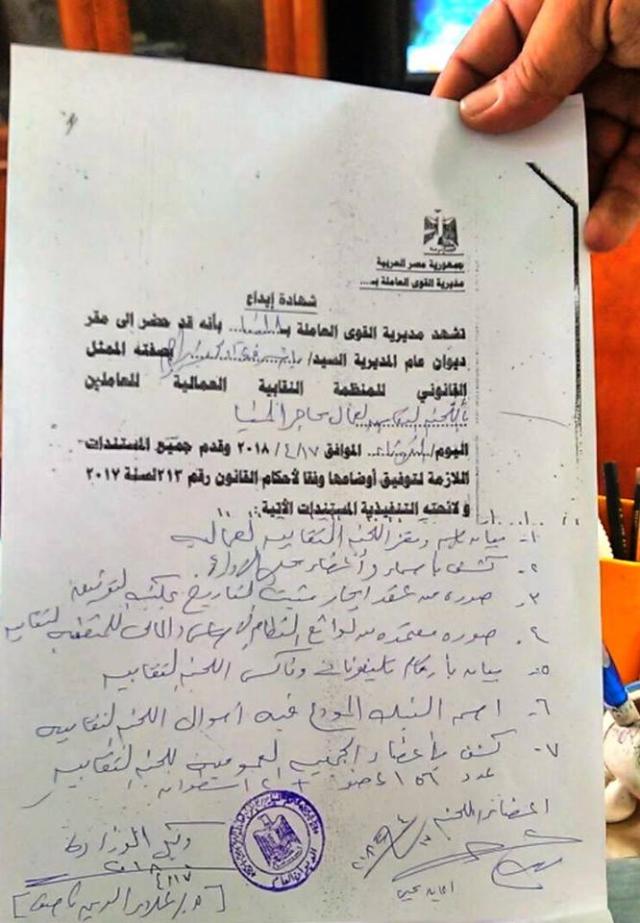 جمهورية مصر العربية
مديرية القوى العاملة بـ....
شهادة إيداع
تشهد مديرية القوى العاملة بـ المنيا بأنه قد حضر إلى مقر
ديوان عام المديرية السيد/ بصفته الممثل
القانوني للمنظمة النقابية العمالية للعاملين
باللجنة النقابية لعمال محاجر المنيا
اليوم/ الثلاثاء الموافق ٢٠١٨/٤/١٧ وقدم جميع المستندات
اللازمة لتوفيق أوضاعها وفقا لأحكام القانون رقم ٢١٣ لسنة ٢٠١٧
ولائحته التنفيذية المستندات الآتية:
١- بيان باسم ومقر اللجنة النقابية العمالية
٢- كشف بأسماء وأعضاء مجلس الإدارة
٣- صورة من عقد ايجار مثبت التاريخ
٤- صورة معتمدة من لوائح النظام الأساسي والمالي للمنظمة النقابية
٥- بيان بأرقام تليفونات وفاكس اللجنة النقابية
٦- اسم البنك المودع فيه أموال اللجنة النقابية
٧- كشف بأعضاء الجمعية العمومية للجنة النقابية
عدد ١٥٦ عضو + ٢١ استمارة
أعضاء اللجنة
وكيل الوزارة
٢٠١٨
٤/١٧